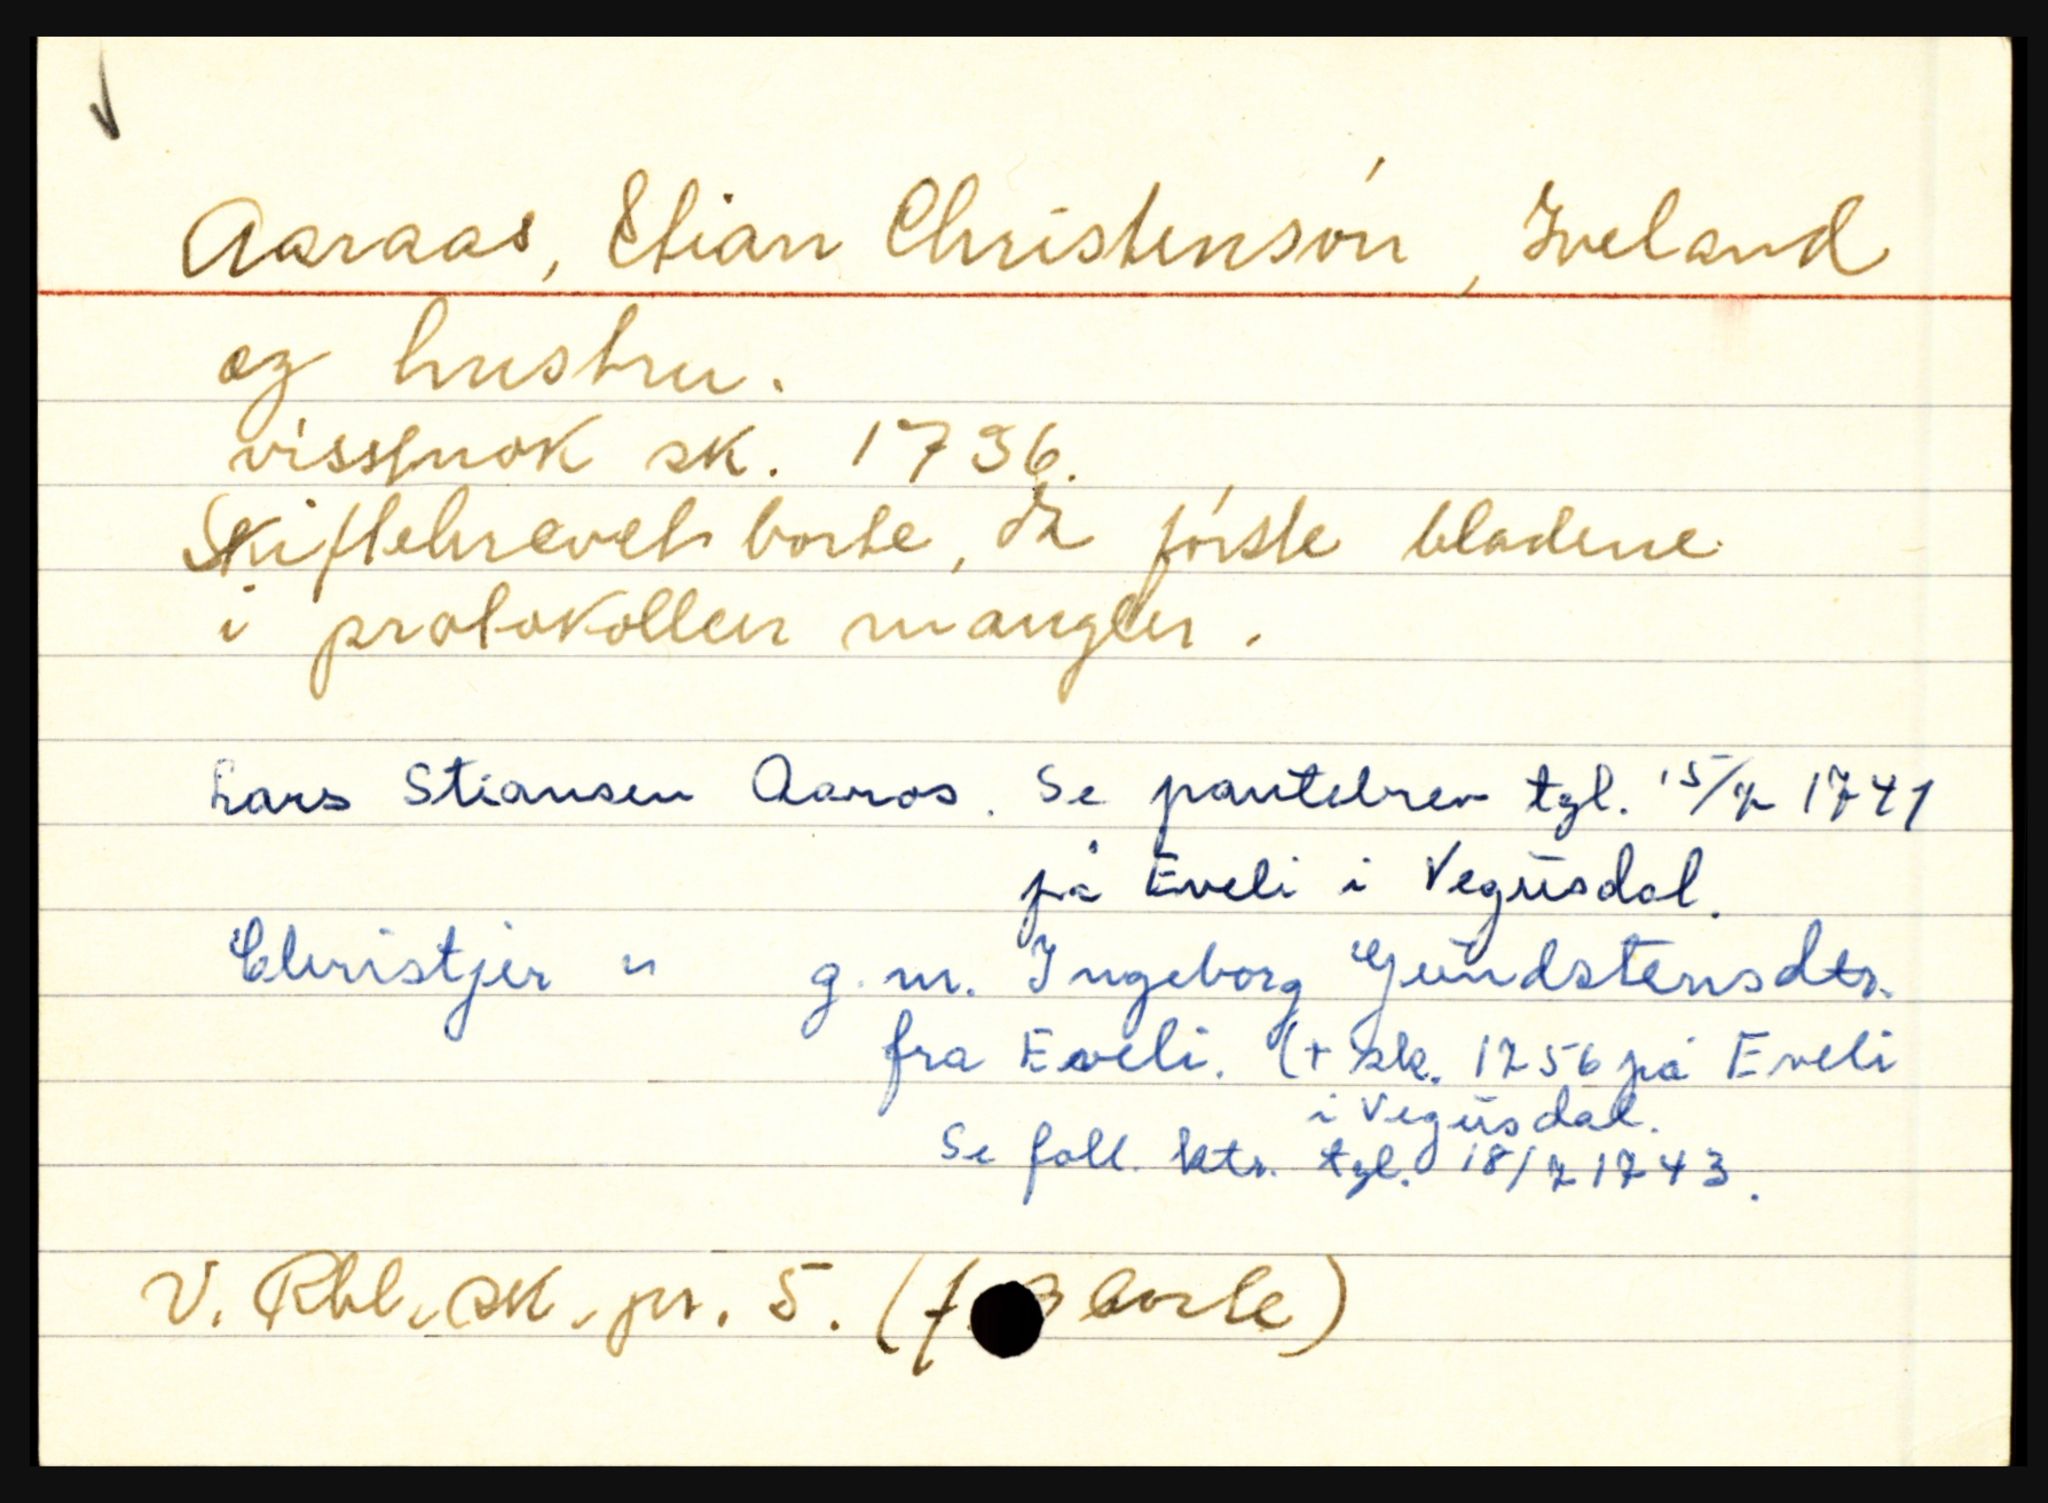 Aaraas, Stian Christensøn, Iveland
og hustru.
vissnok sk. 1736.
Skiftebrevet borte, da første bladene
i protokollen mangler.
Lars Stiansen Aaros. Se pantebrev tgl. 15/7 1741
på Eveli i Vegusdal.
Christjer " g.m. Ingeborg Gundstensdtr.
fra Eveli. (+ sk. 1756 på Eveli
i Vegusdal.
Se foll. ktr. tgl. 18/7 1743.
V. Rbl. sk. pr. 5. (f. 3 borte)